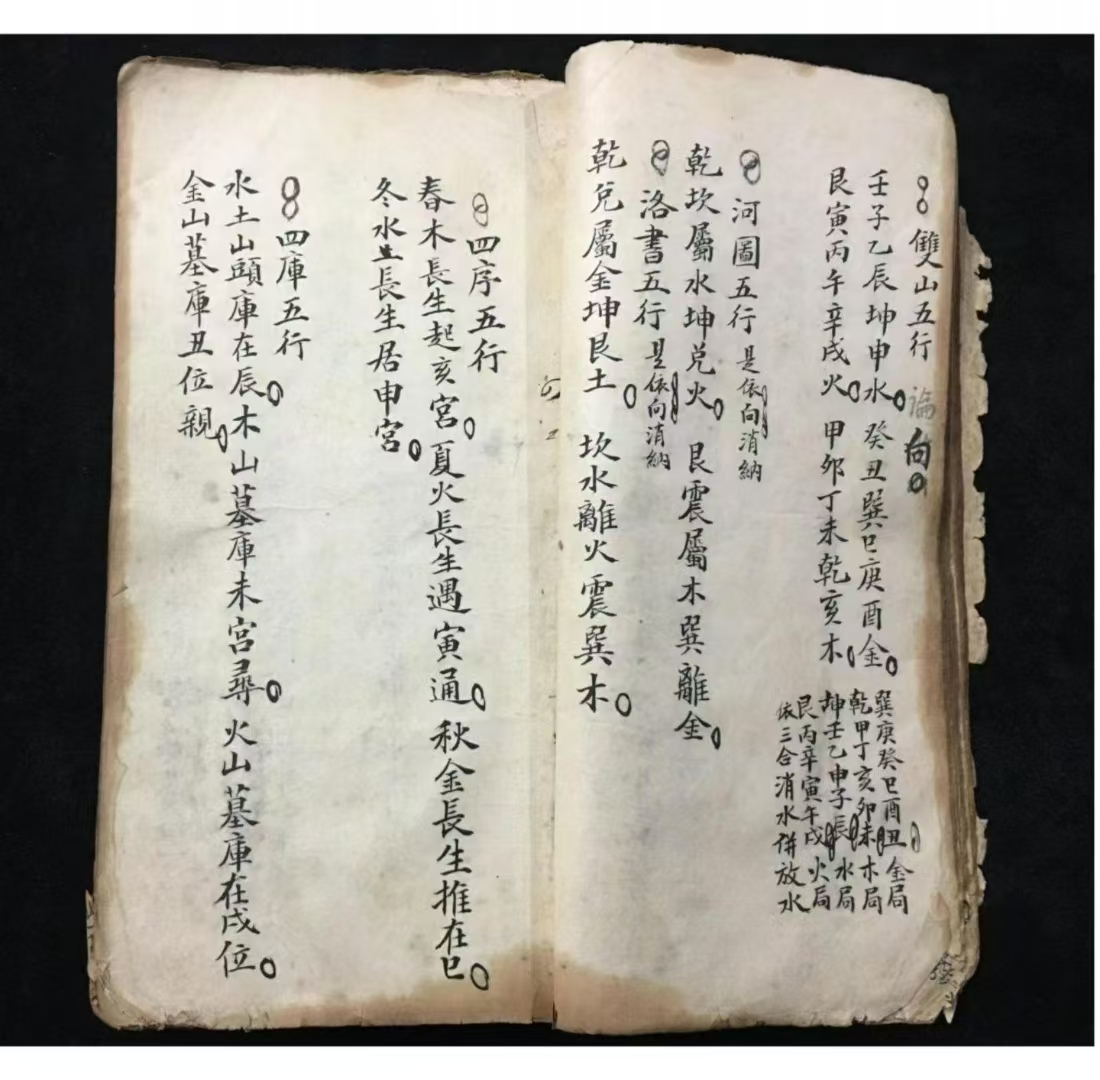 雙山五行 論向
壬子乙辰坤申水 癸丑巽巳庚酉金
艮寅丙午辛戌火 甲卯丁未乾亥木
巽庚癸巳酉丑金局
乾甲丁亥卯未木局
坤壬乙申子辰水局
艮丙辛寅午戌火局
依三合消水併放水
河圖五行 是依向消納
乾坎屬水坤兌火 艮震屬木巽離金
洛書五行 是依向消納
乾兌屬金坤艮土 坎水離火震巽木
四序五行
春木長生起亥宮 夏火長生遇寅通 秋金長生推在巳
冬水生長生居申宮
四庫五行
水土山頭庫在辰 木山墓庫未宮尋 火山墓庫在戌位
金山墓庫丑位親